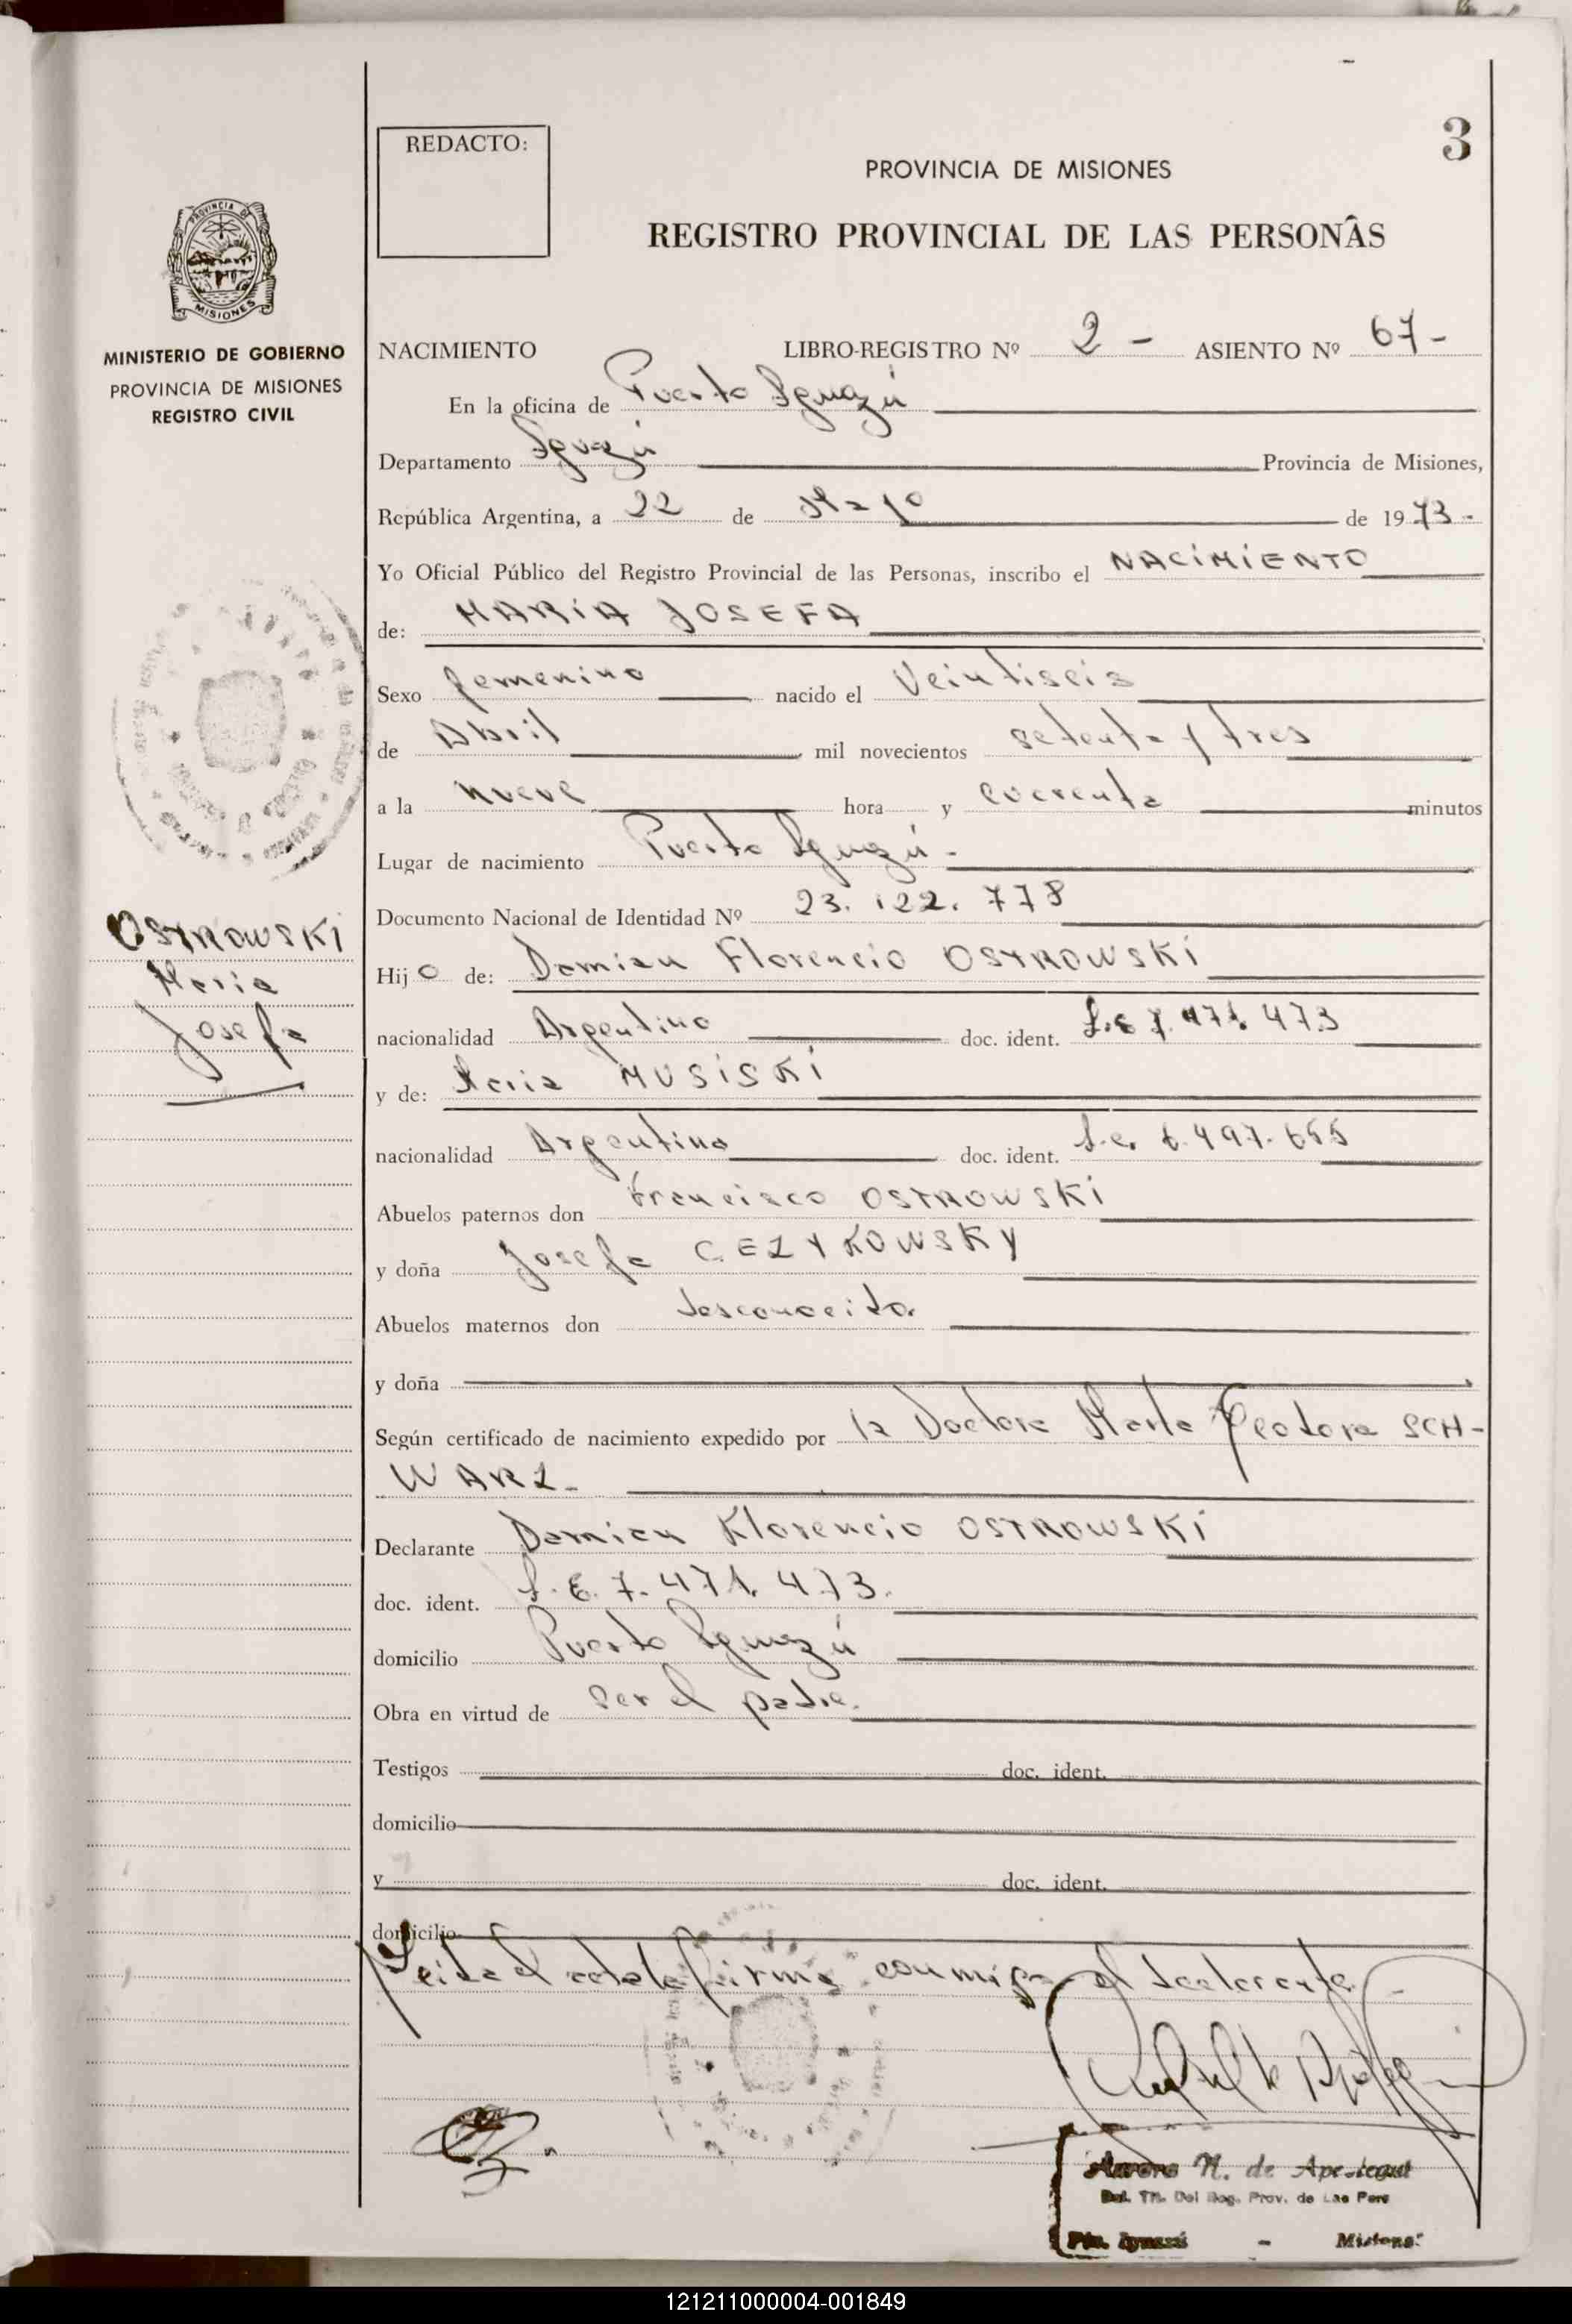 REDACTO:
3
PROVINCIA DE MISIONES
REGISTRO PROVINCIAL DE LAS PERSONAS
PROVINCIA DE
MISIONES
MINISTERIO DE GOBIERNO
PROVINCIA DE MISIONES
REGISTRO CIVIL
NACIMIENTO LIBRO-REGISTRO Nº 2 - ASIENTO Nº 67 -
En la oficina de Puerto Iguazú
Departamento Iguazú Provincia de Misiones,
República Argentina, a 22 de Mayo de 1973 -
Yo Oficial Público del Registro Provincial de las Personas, inscribo el NACIMIENTO
de: MARIA JOSEFA
Sexo femenino nacido el Veintiseis
de Abril mil novecientos setenta y tres
a la nueve hora y cuarenta minutos
Lugar de nacimiento Puerto Iguazú -
Documento Nacional de Identidad Nº 23.122.778
OSTROWSKI
Maria
Josefa
Hijo de: Damian Florencio OSTROWSKI
nacionalidad Argentino doc. ident. L.E 7.471.473
y de: Maria MUSISKI
nacionalidad Argentina doc. ident. L.C. 6.497.655
Abuelos paternos don Francisco OSTROWSKI
y doña Josefa CEZYKOWSKY
Abuelos maternos don
y doña
Según certificado de nacimiento expedido por la Doctora Marta Teodora SCH-
WARZ -
Declarante Damian Florencio OSTROWSKI
doc. ident. L.E. 7.471.473.
domicilio Puerto Iguazú
Obra en virtud de ser el padre.
Testigos doc. ident.
domicilio
y doc. ident.
domicilio
Leida el acta la firma conmigo el declarante
N. de Apestegui
Del. Tit. Del Reg. Prov. de Las Pers
Pto. Iguazú - Misiones
121211000004-001849